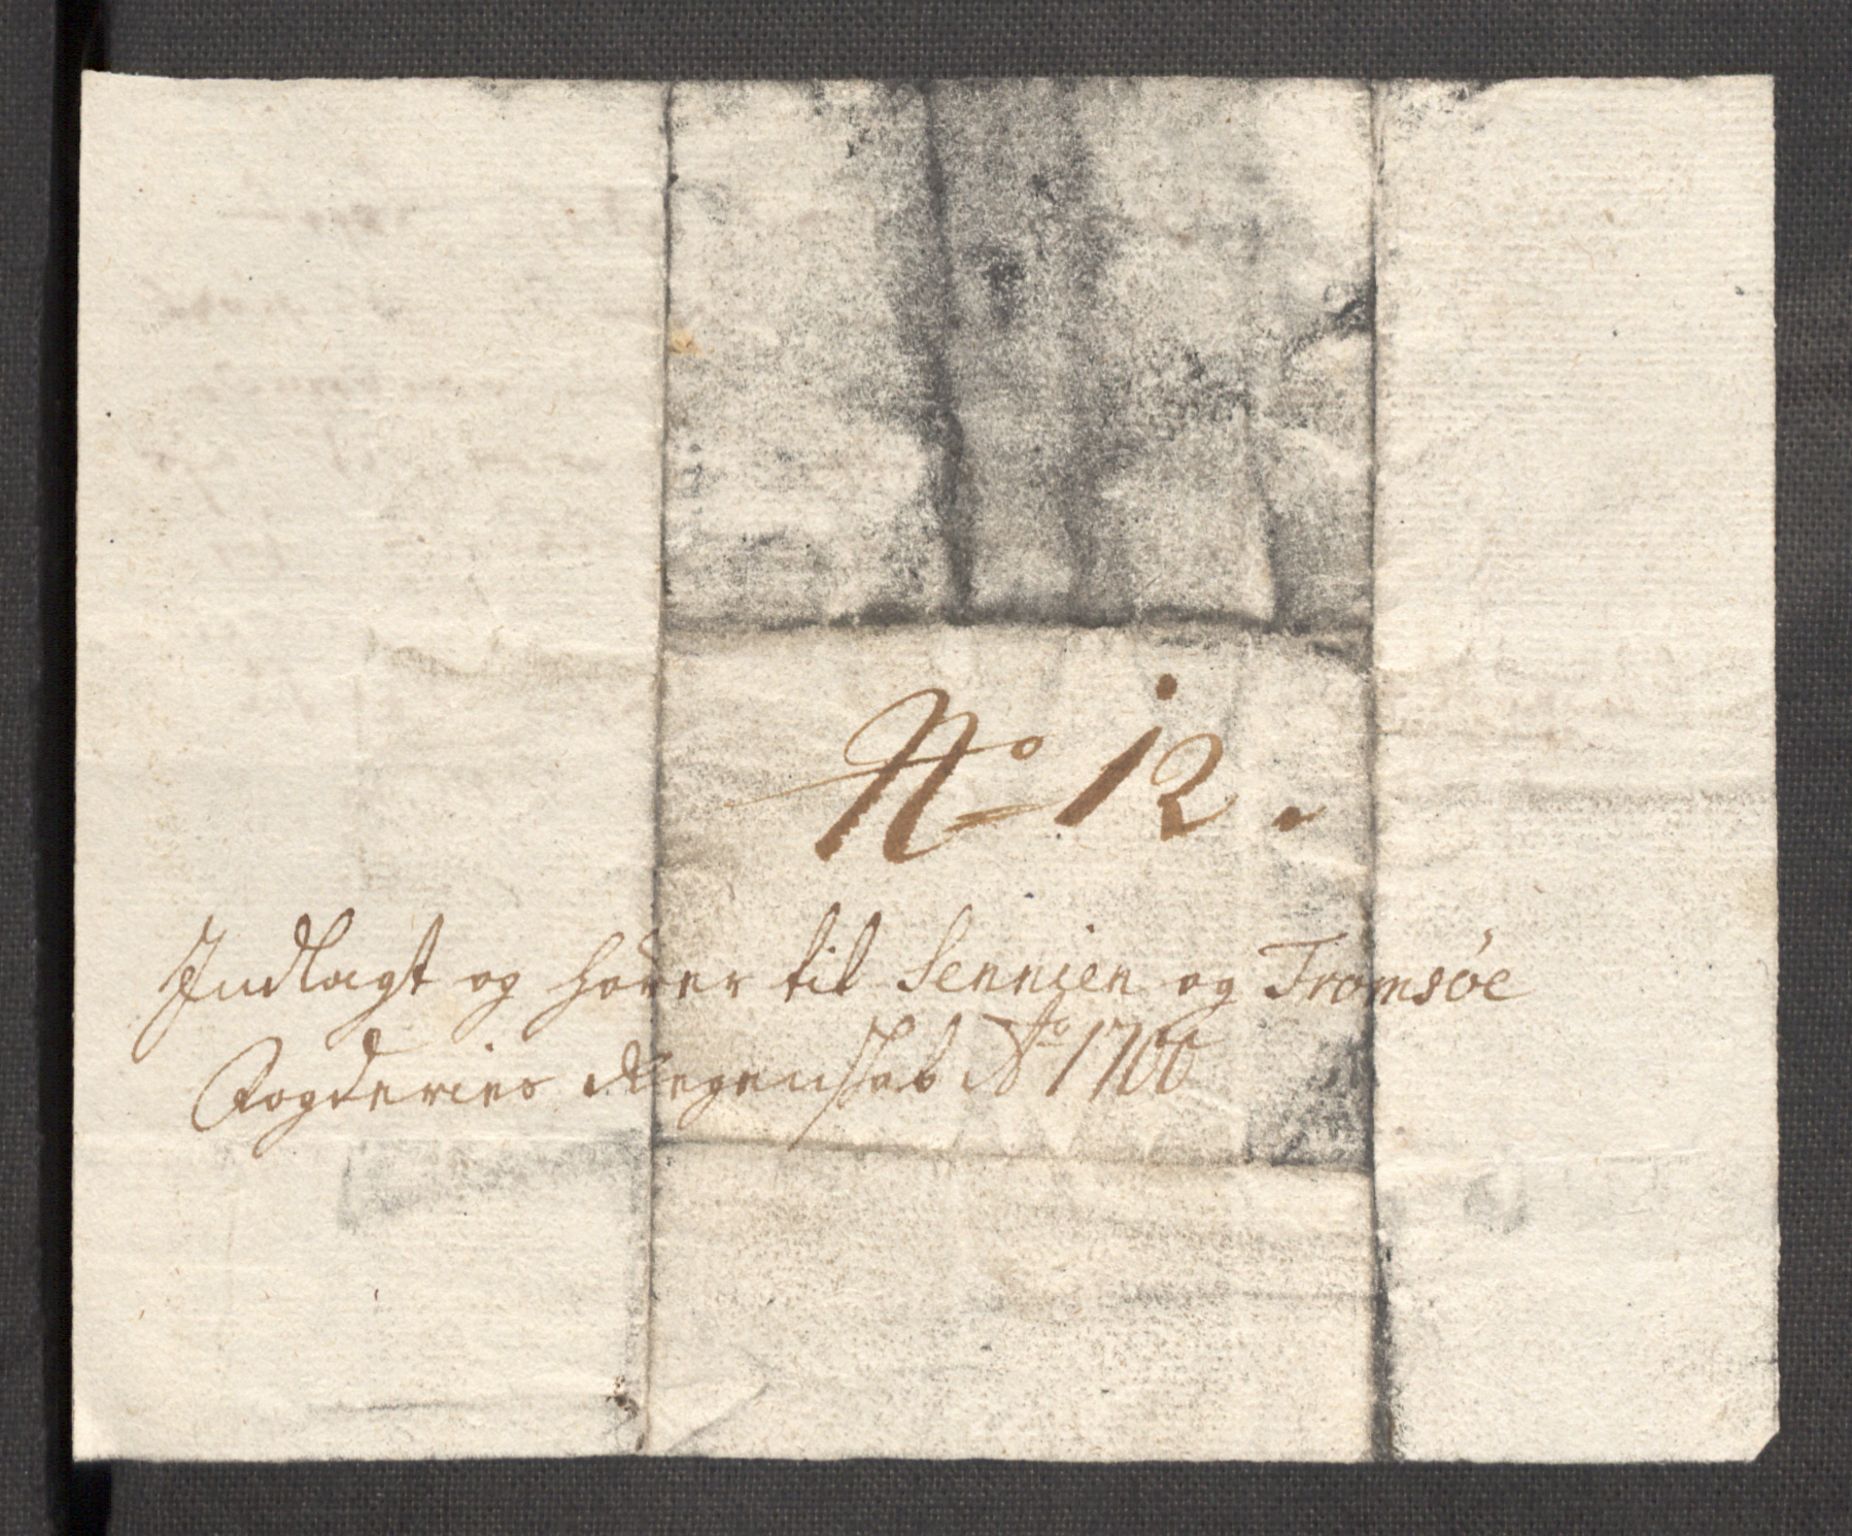 No 12.
Indlagt og hører til Sennien og Tromsøe
Fogderies Regenskab Ao 1700